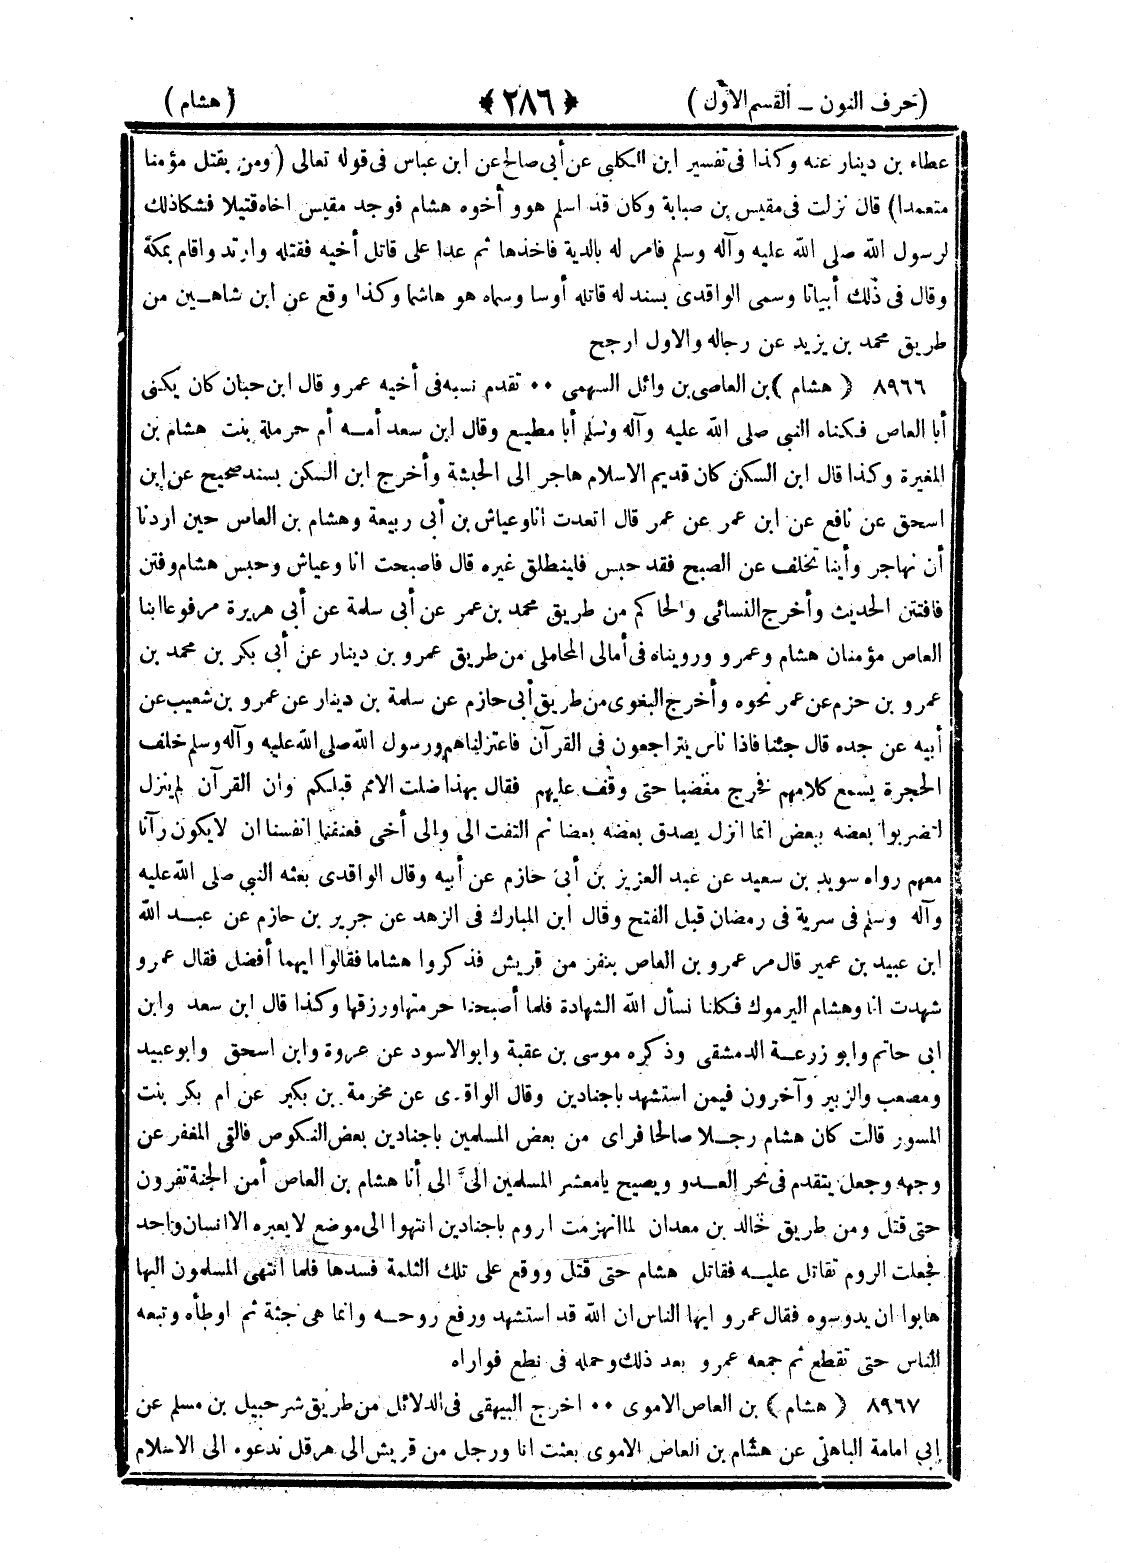 (حرف النون ــ القسم الاوّل) ﴿٢٨٦﴾ (هشام)
عطاء بن دينار عنه وكذا فى تفسير ابن الكلبى عن أبى صالح عن ابن عباس فى قوله تعالى (ومن يقتل مؤمنا
متعمدا) قال نزلت فى مقيس بن صبابة وكان قد اسلم هو وأخوه هشام فوجد مقيس اخاه قتيلا فشكا ذلك
لرسول الله صلى الله عليه وآله وسلم فامر له بالدية فاخذها ثم عدا على قاتل أخيه فقتله وارتد واقام بمكة
وقال فى ذلك أبياتا وسمى الواقدى بسند له قاتله أوسا وسماه هو هاشما وكذا وقع عن ابن شاهــين من
طريق محمد بن يزيد عن رجاله والاول ارجح
٨٩٦٦ (هشام) بن العاصى بن وائل السهمى ٠٠ تقدم نسبه فى أخيه عمرو قال ابن حبان كان يكنى
أبا العاص فكناه النبي صلى الله عليه وآله وسلم أبا مطيع وقال ابن سعد أمــه أم حرملة بنت هشام بن
المغيرة وكذا قال ابن السكن كان قديم الاسلام هاجر الى الحبشة وأخرج ابن السكن بسند صحيح عن ابن
اسحق عن نافع عن ابن عمر عن عمر قال اتعدت انا وعياش بن أبى ربيعة وهشام بن العاص حين اردنا
أن نهاجر وأينا تخلف عن الصبح فقد حبس فلينطلق غيره قال فاصبحت انا وعياش وحبس هشام وفتن
فافتتن الحديث وأخرج النسائى والحاكم من طريق محمد بن عمر عن أبى سلمة عن أبى هريرة مرفوعا ابنا
العاص مؤمنان هشام وعمرو ورويناه فى أمالى المحاملى من طريق عمرو بن دينار عن أبى بكر بن محمد بن
عمرو بن حزم عن عمر نحوه وأخرج البغوى من طريق أبى حازم عن سلمة بن دينار عن عمرو بن شعيب عن
أبيه عن جده قال جئنا فاذا ناس يتراجعون فى القرآن فاعتزلناهم ورسول الله صلى الله عليه وآله وسلم خلف
الحجرة يسمع كلامهم فخرج مغضبا حتى وقف عليهم فقال بهذا ضلت الامم قبلكم وان القرآن لم ينزل
لتضربوا بعضه ببعض انما انزل يصدق بعضه بعضا ثم التفت الى والى أخى فغبطنا انفسنا ان لايكون رآنا
معهم رواه سويد بن سعيد عن عبد العزيز بن أبى حازم عن أبيه وقال الواقدى بعثه النبي صلى الله عليه
وآله وسلم فى سرية فى رمضان قبل الفتح وقال ابن المبارك فى الزهد عن جرير بن حازم عن عبــد الله
ابن عبيد بن عمير قال مر عمرو بن العاص بنفر من قريش فذكروا هشاما فقالوا ايهما أفضل فقال عمرو
شهدت انا وهشام اليرموك فكلنا نسأل الله الشهادة فلما أصبحنا حرمتها ورزقها وكذا قال ابن سعد وابن
ابى حاتم وابو زرعــة الدمشقى وذكره موسى بن عقبة وابو الاسود عن عروة وابن اسحق وابو عبيد
ومصعب والزبير وآخرون فيمن استشهد باجنادين وقال الواقدى عن مخرمة بن بكير عن ام بكر بنت
المسور قالت كان هشام رجــلا صالحا فراى من بعض المسلمين باجنادين بعض النكوص فالقى المغفر عن
وجهه وجعل يتقدم فى نحر العــدو ويصيح يا معشر المسلمين الىّ الى أنا هشام بن العاص أمن الجنة تفرون
حتى قتل ومن طريق خالد بن معدان لما انهزمت اروم باجنادين انتهوا الى موضع لا يعبره الا انسان واحد
فجعلت الروم تقاتل عليــه فقاتل هشام حتى قتل ووقع على تلك الثلمة فسدها فلما انتهى المسلمون اليها
هابوا ان يدوسوه فقال عمرو ايها الناس ان الله قد استشهد ورفع روحــه وانما هى جثة ثم اوطأه وتبعه
الناس حتى تقطع ثم جمعه عمرو بعد ذلك وحمله فى نطع فواراه
٨٩٦٧ (هشام) بن العاص الاموى ٠٠ اخرج البيهقى فى الدلائل من طريق شرحبيل بن مسلم عن
ابي امامة الباهلى عن هشام بن العاص الاموى بعثت انا ورجل من قريش الى هرقل ندعوه الى الاسلام